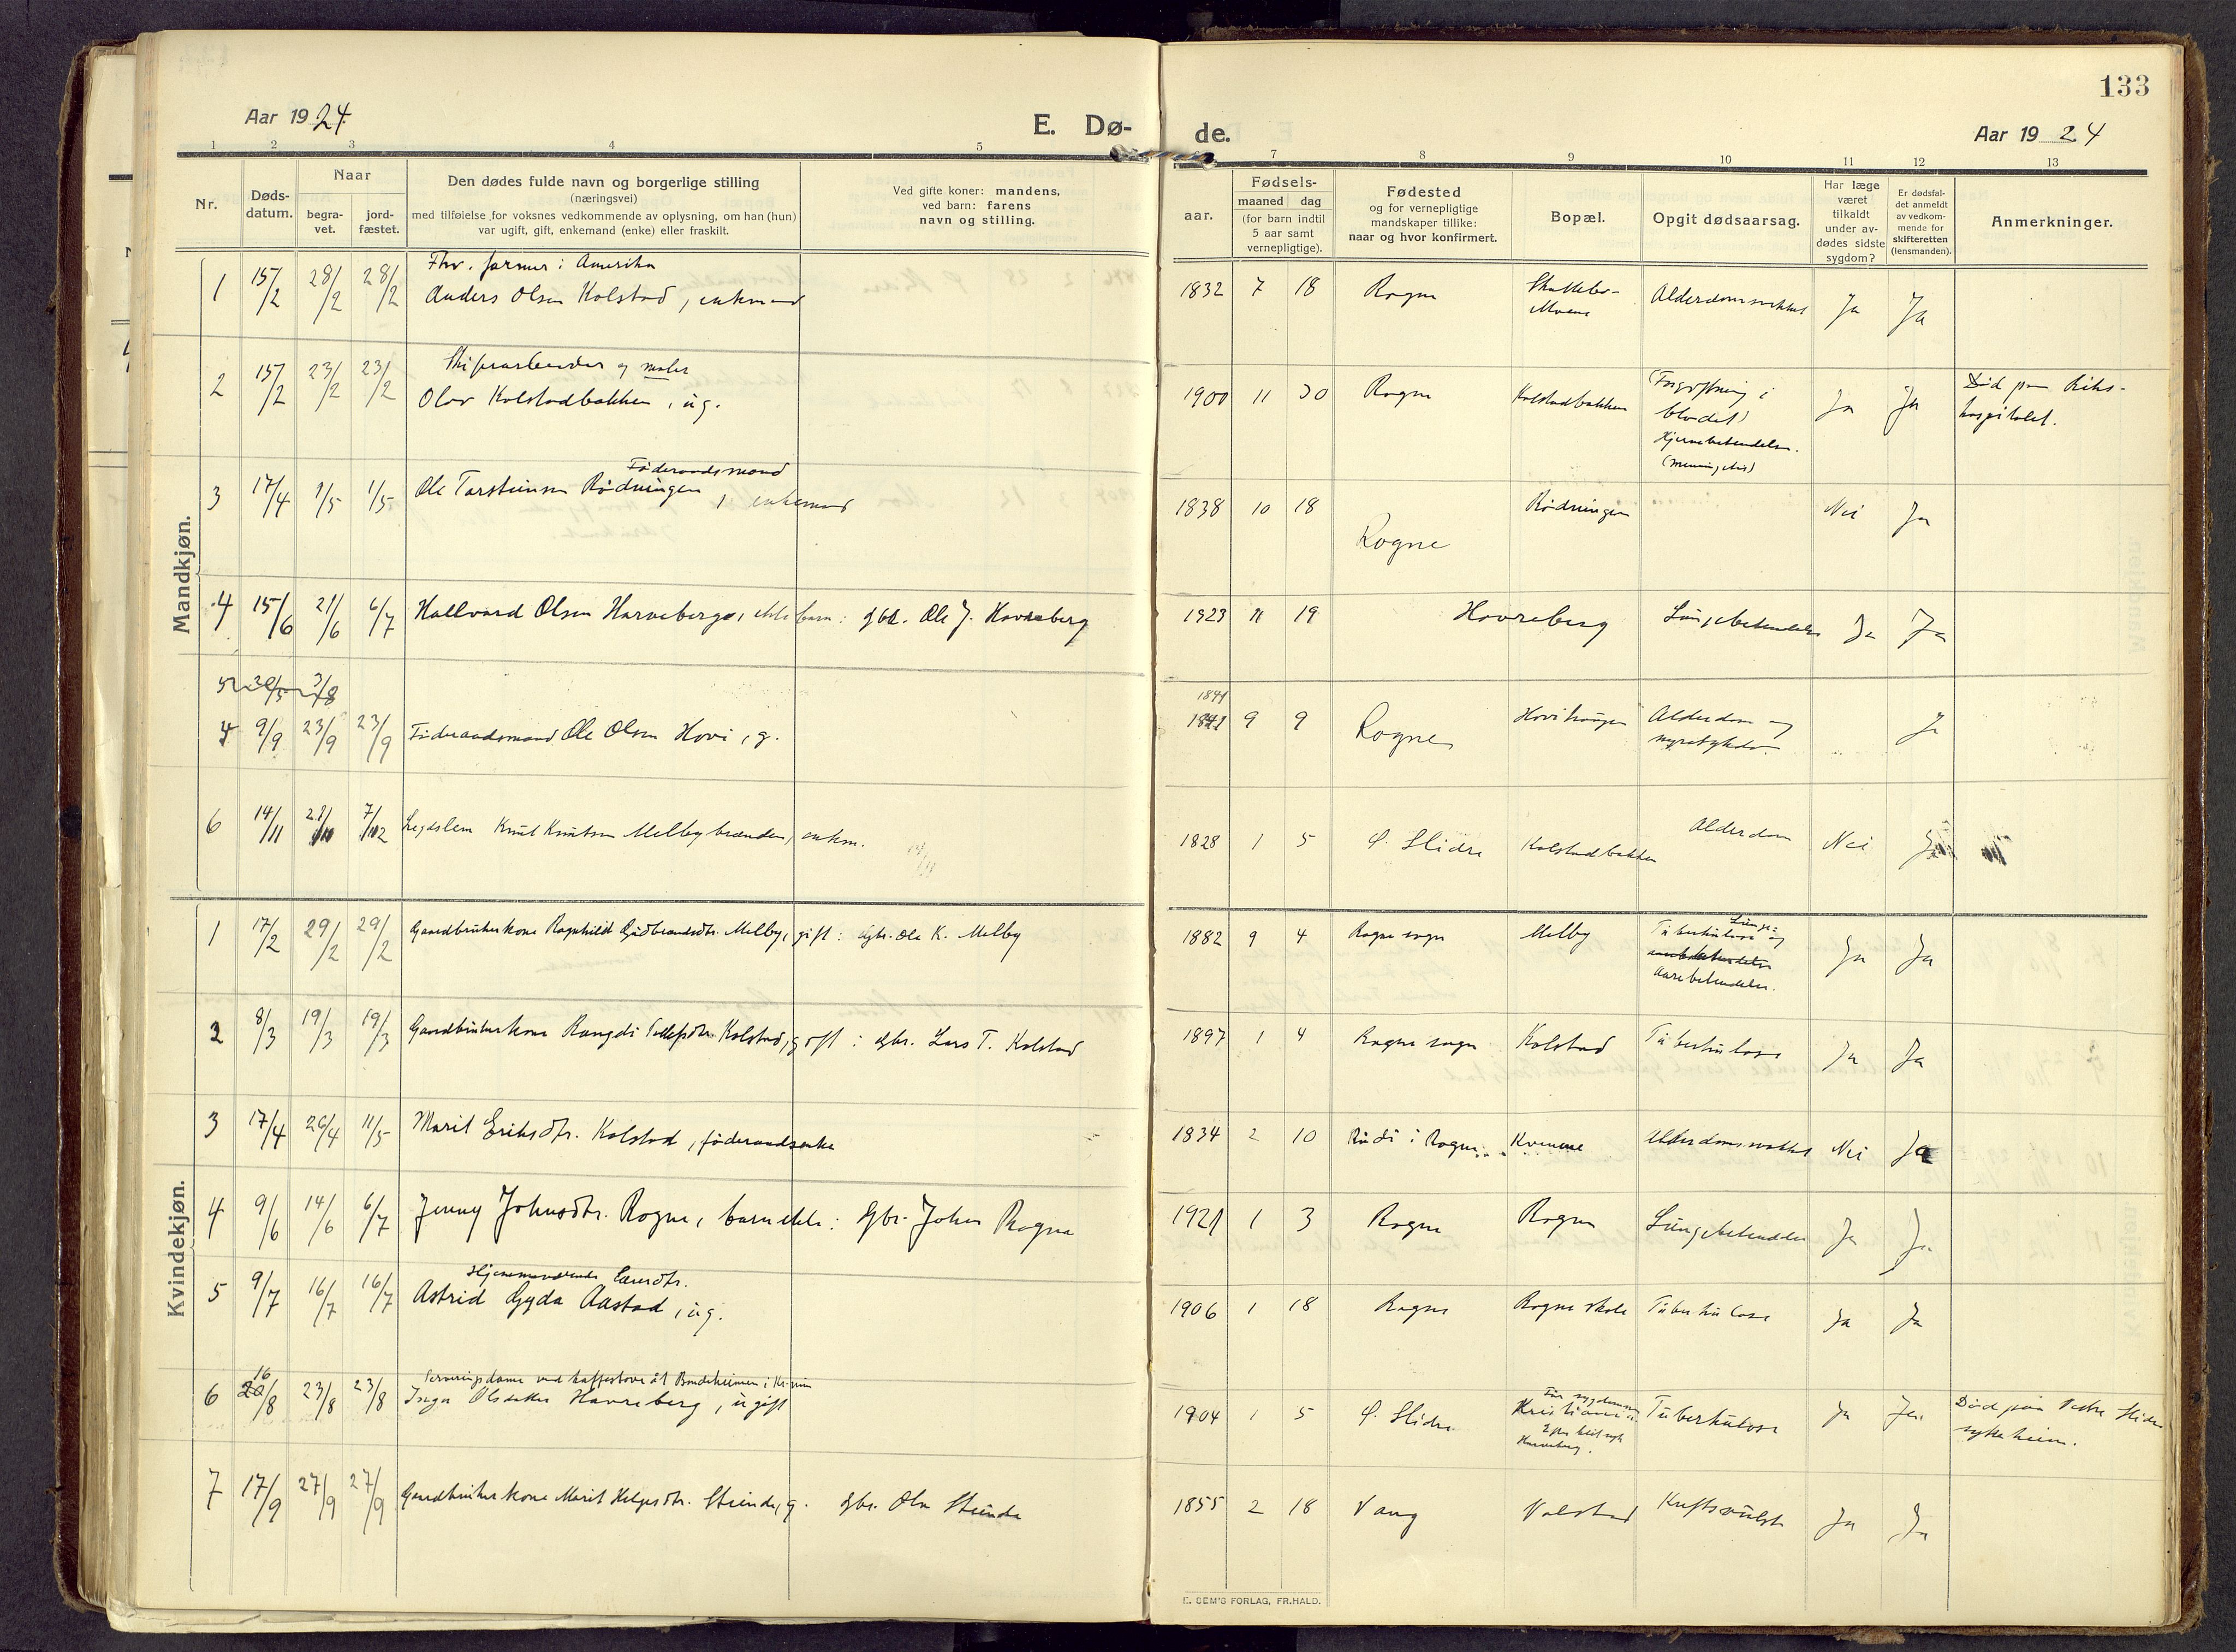 133
Aar 1924.
E. Dø-
de.
Aar 1924
1 2 3 4 5
7 8 9 10 11 12 13
Nr.
Døds-
datum.
Naar
begra-
vet.
jord-
fæstet.
Den dødes fulde navn og borgerlige stilling
(næringsvei)
med tilføielse for voksnes vedkommende av oplysning, om han (hun)
var ugift, gift, enkemand (enke) eller fraskilt.
Ved gifte koner: mandens,
ved barn: farens
navn og stilling.
aar.
Fødsels-
maaned dag
(for barn indtil
5 aar samt
vernepligtige).
Fødested
og for vernepligtige
mandskaper tillike:
naar og hvor konfirmert.
Bopæl.
Opgit dødsaarsag.
Har læge
været
tilkaldt
under av-
dødes sidste
sygdom?
Er dødsfal-
det anmeldt
av vedkom-
mende for
skifteretten
(lensmanden).
Anmerkninger.
Mandkjøn.
Fhv. farmer i Amerika
1 15/2 28/2 28/2 Anders Olsen Kolstad, enkemand
1832 7 18 Rogne Alderdomssvækkelse Ja Ja
2 15/2 23/2 23/2 Olav Kolstadbakken, ug.
1900 11 30 Rogne Kolstadbakken Forgiftning i
blodet)
Hjernebetendelse.
(meningitis)
Ja Ja Död paa Riks-
hospitalet.
Föderaadsmand
3 17/4 1/5 1/5 Ole Torsteinsen Rødningen, enkemand
1838 10 18 Rogne Rødningen Nei Ja
4 15/6 21/6 6/7 Hallvard Olsen Havreberg, ekte barn: gbr. Ole J. Havreberg
1923 11 19 Havreberg Lungebetendelse Ja Ja
5 30/5 3/8
9/9 23/9 23/9 Föderaadsmand Ole Olsen Hovi, g.
1841
1841 9 9 Rogne Alderdom og
Ja
6 14/11 7/12 Legdslem Knut Knutsen Melbybrænden, enkm.
1828 1 5 Ø. Slidre Kolstadbakken Alderdom Nei Ja
Kvindekjøn.
1 17/2 29/2 29/2 Gaardbrukerkone Ragnhild Gudbrandsdtr. Melby, gift: gbr. Ole K. Melby
1882 9 4 Rogne sogn Melby Lunge-
Tuberkulose og
Aarebetendelse.
Ja Ja
2 8/3 19/3 19/3 Gaardbrukerkone Rangdi Tollefsdtr. Kolstad, gift: gbr. Lars T. Kolstad
1897 1 4 Rogne sogn Kolstad Tuberkulose Ja Ja
3 17/4 26/4 11/5 Marit Eriksdtr. Kolstad, föderaadsenke
1834 2 10 Rudi i Rogne Kvemme Alderdomssvækkelse Nei Ja
4 9/6 14/6 6/7 Jenny Johnsdtr. Rogne, barn ekte: gbr. John Rogne
1921 1 3 Rogne Rogne Lungebetendelse Ja Ja
Hjemmeværende
5 9/7 16/7 16/7 Astrid Gyda Aastad, ug.
1906 1 18 Rogne Rogne skole Tuberkulose Ja Ja
Serveringsdame ved kaffestova åt Bondeheimen i Kr.
6 16/8 23/8 23/8 Inga Olsdatter Havreberg, ugift
1904 1 5 Ø. Slidre Før sygdommen
Kristiania
Havreberg.
Tuberkulose Ja Ja Död paa Vestre Slidre
sykeheim.
7 17/9 27/9 27/9 Gaardbrukerkone Marit Helgesdtr. Steinde, g. gbr. Ola Steinde
1855 2 18 Vang Volstad Kræftsvulst Ja Ja
E. SEM'S FORLAG, FR.HALD.